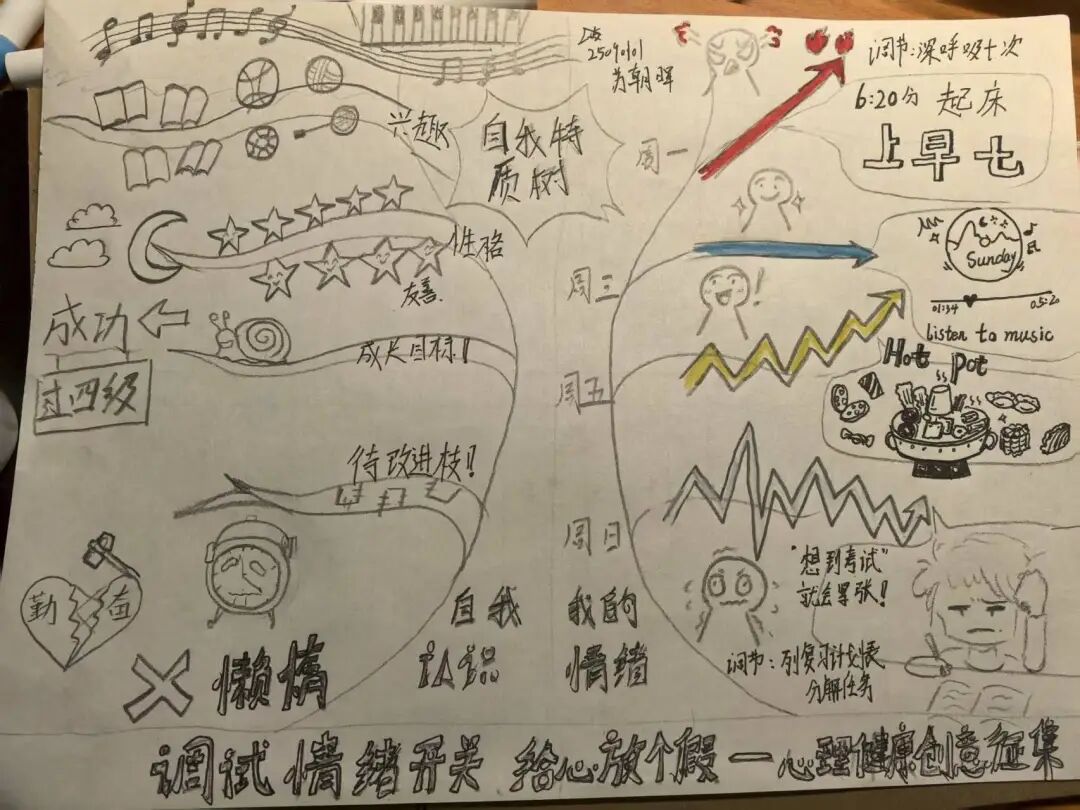 25090101
为朝晖
兴趣
自我特
质树
性格
友善
成功
过四级
成长目标!
待改进枝!
勤奋
懒惰
自我
认识
我的
情绪
周一
调节:深呼吸十次
6:20分 起床
上早七
周三
Sunday
01:34
05:20
listen to music
周五
Hot pot
周日
"想到考试"
就会紧张!
调节:列复习计划表
分解任务
调试情绪开关 给心放个假一心理健康创意征集